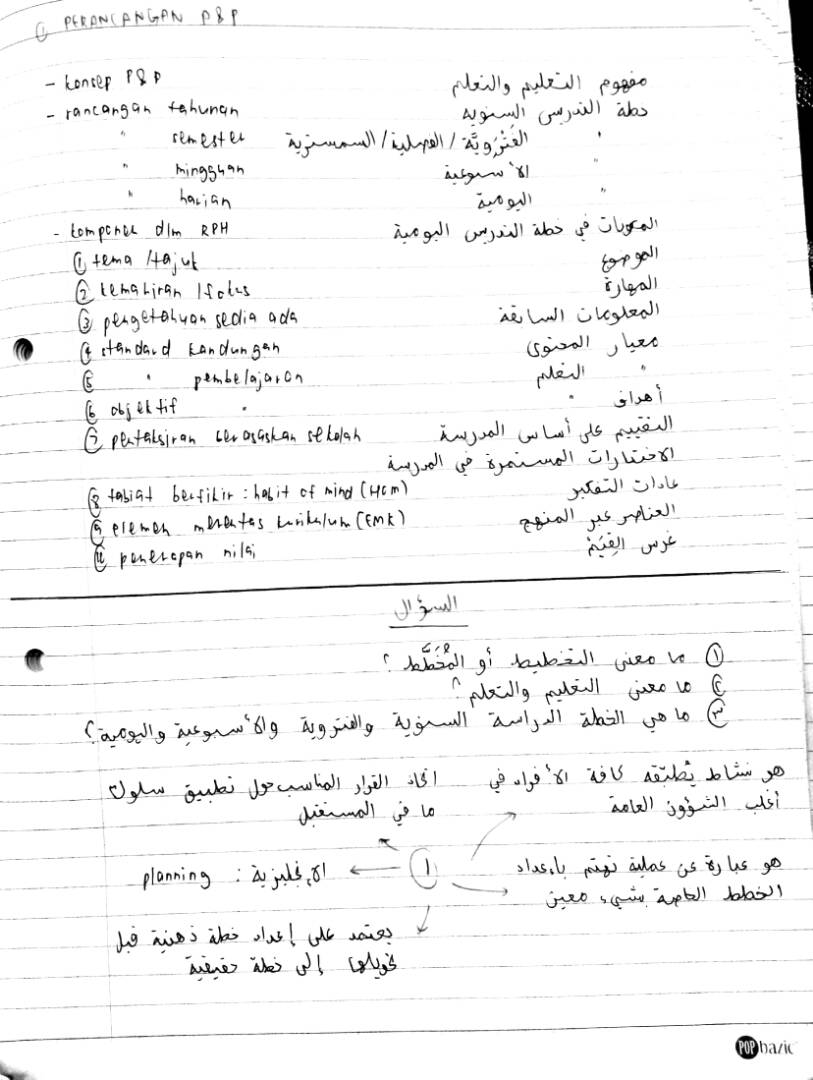 ① PERANCANGAN P&P
- konsep P&P مفهوم التعليم والتعلم
- rancangan tahunan خطة التدريس السنوية
" semester " الفَتْرَوِيَّة / الفصلية / السمسترية
" mingguan " الأسبوعية
" harian " اليومية
- komponen dlm RPH المكونات في خطة التدريس اليومية
① tema / tajuk الموضوع
② kemahiran / fokus المهارة
③ pengetahuan sedia ada المعلومات السابقة
④ standard kandungan معيار المحتوى
⑤ " pembelajaran " التعلم
⑥ objektif " أهداف "
⑦ pentaksiran berasaskan sekolah التقييم على أساس المدرسة
الاختبارات المستمرة في المدرسة
⑧ tabiat berfikir : habit of mind (HOM) عادات التفكير
⑨ elemen merentas kurikulum (EMK) العناصر عبر المنهج
⑩ penerapan nilai غرس القِيَمْ
السؤال
① ما معنى التخطيط أو المُخَطَّط ؟
② ما معنى التعليم والتعلم ؟
③ ما هي الخطة الدراسة السنوية والفتروية والأسبوعية واليومية ؟
هو نشاط يُطبّقه كافة الأفراد في
أغلب الشؤون العامة
اتخاذ القرار المناسب حول تطبيق سلوك
ما في المستقبل
①
الإنجليزية : planning
هو عبارة عن عملية تهتم بإعداد
الخطط الخاصة بشيء معين
يعتمد على إعداد خطة ذهنية قبل
تحويلها إلى خطة حقيقية
POP bazic